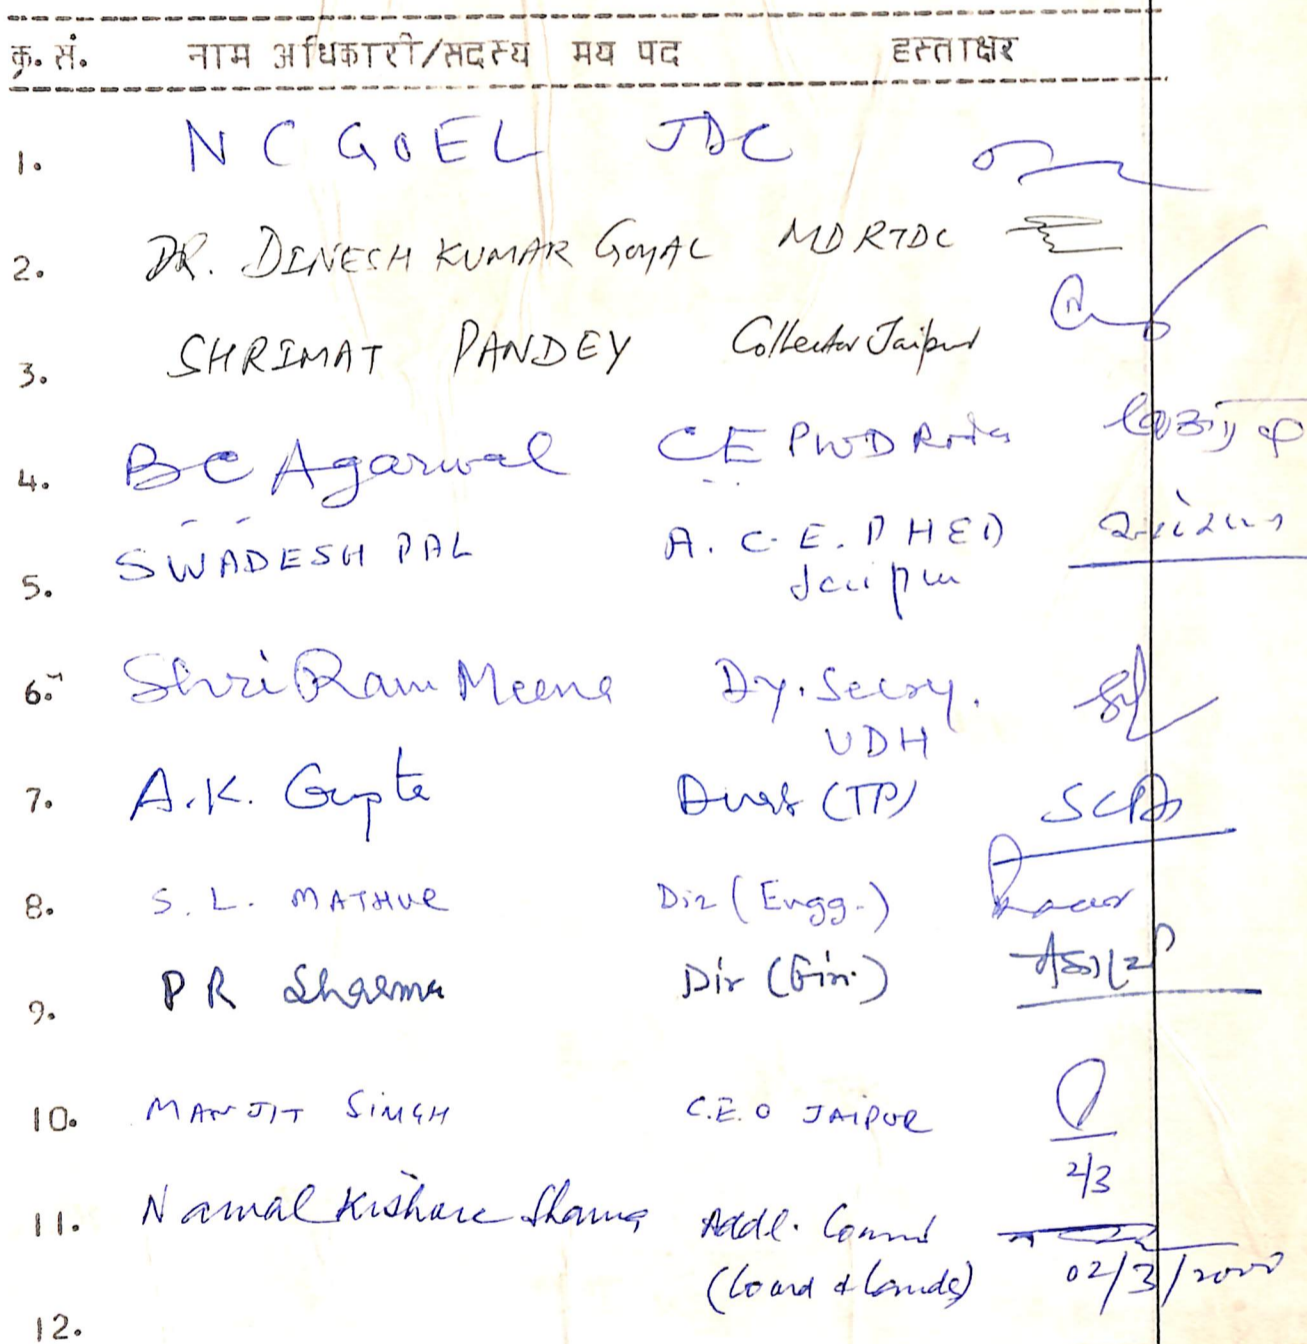 क्र. सं. नाम अधिकारी/सदस्य मय पद हस्ताक्षर
1. N C GOEL JDC
2. DR. DINESH KUMAR GOYAL MD RTDC
3. SHRIMAT PANDEY Collector Jaipur
4. B C Agarwal CE PWD Roads
5. SWADESH PAL A. C. E. PHED
Jaipur
6. Shri Ram Meena Dy. Secry.
UDH
7. A.K. Gupta (TP)
8. S. L. MATHUR Dir (Engg.)
9. P R Sharma Dir (Fin.)
10. MANJIT SINGH C.E.O JAIPUR
2/3
11. Nawal Kishore Sharma Addl. Comm
(Coord & Lands) 02/3/2000
12.